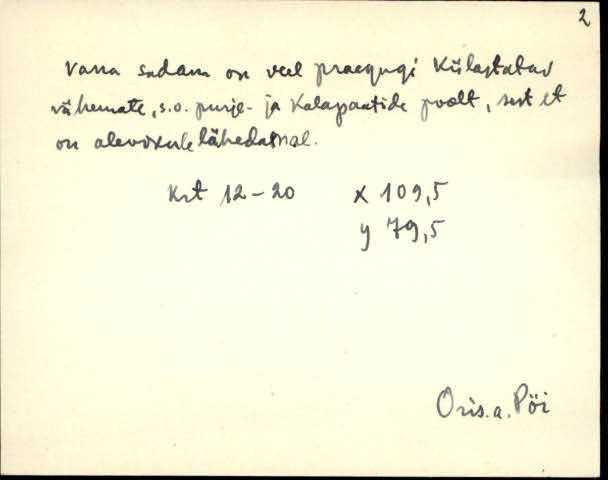 2
Vana sadam on veel praegugi külastatav
vähemate, s.o. purje- ja kalapaatide poolt, sest et
on alevikule lähedamal.
Krt 12-20 x 109,5
y 79,5
Oris.a. Pöi